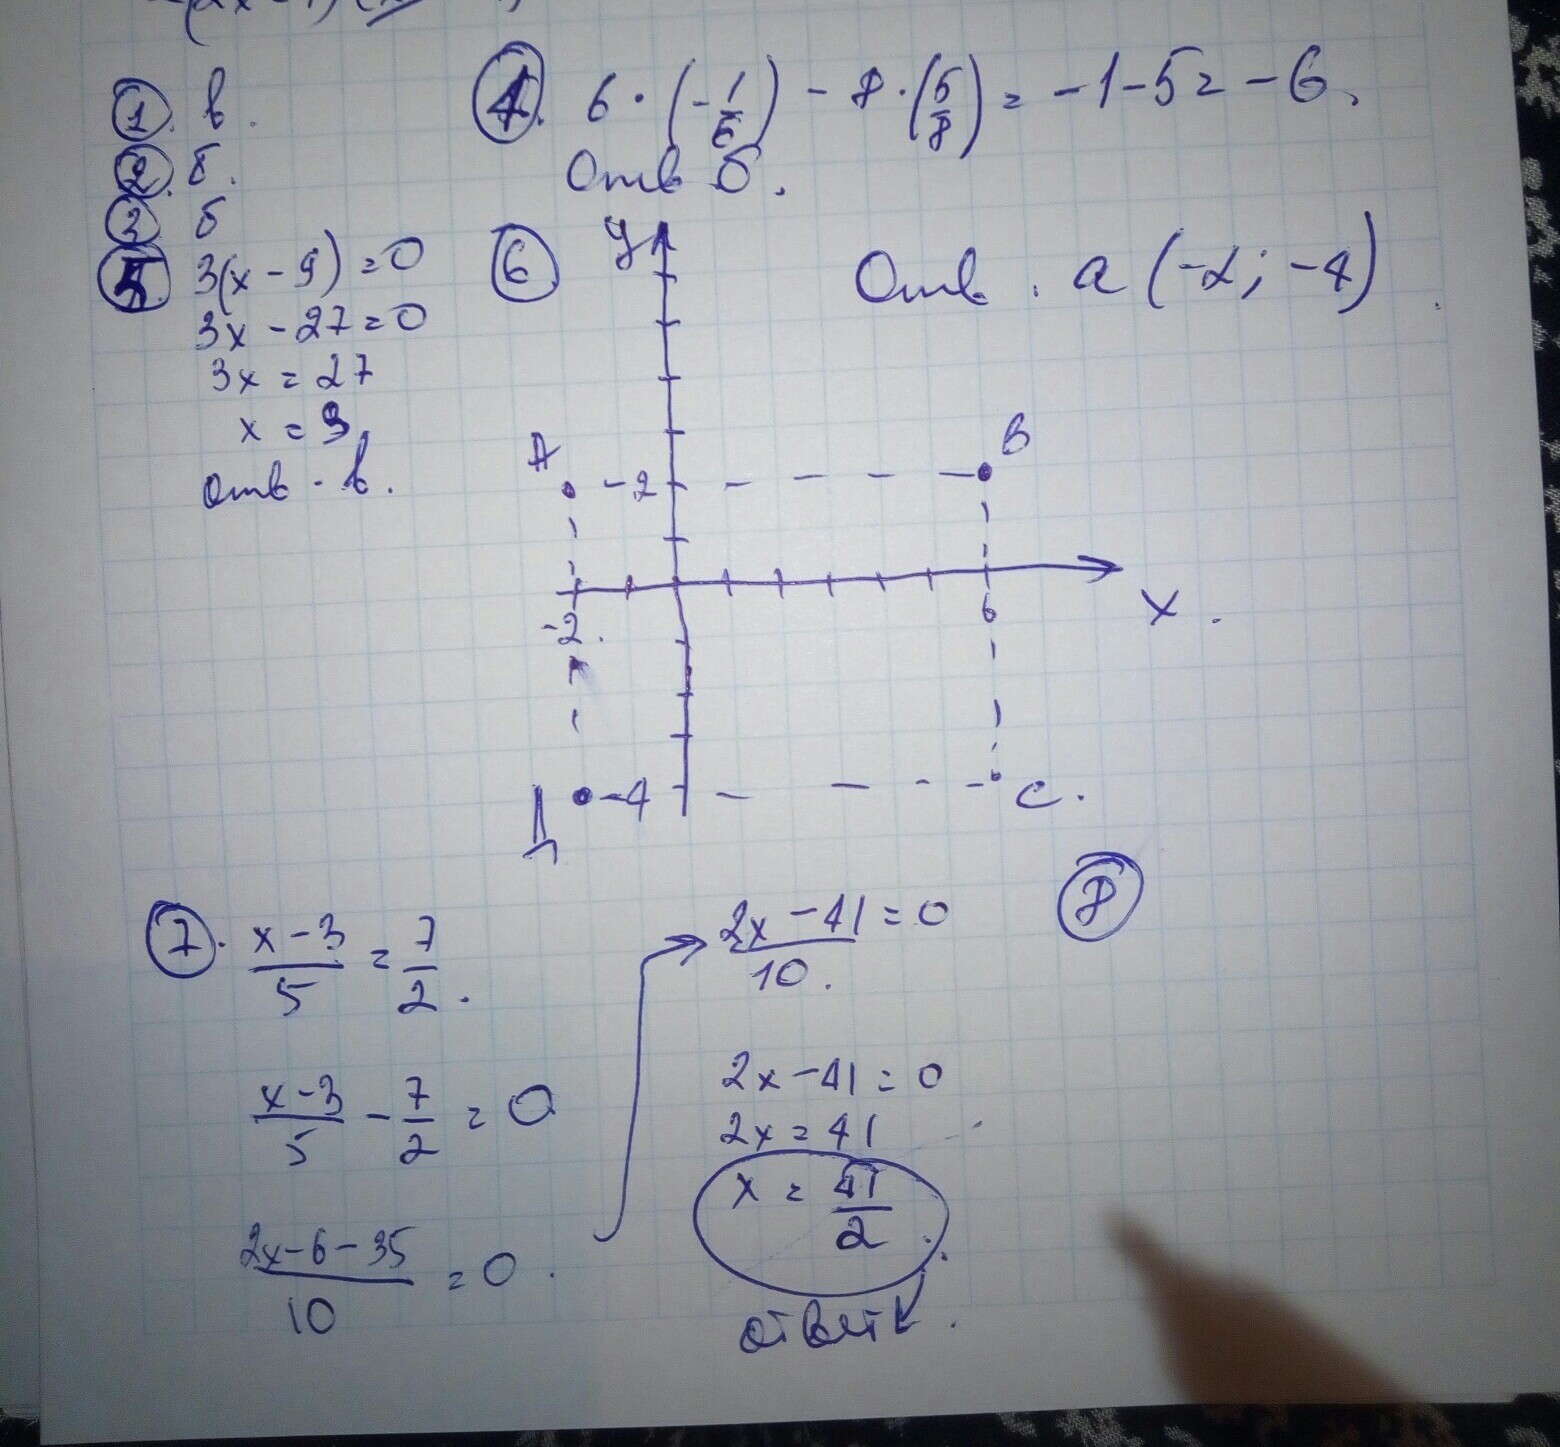 1. в.
2. б.
3 б
4. 6 · (-1/6) - 8 · (5/8) = -1-5 = -6.
Отв б.
5. 3(x - 9) = 0
3x - 27 = 0
3x = 27
x = 9
Отв. в.
6
y
Отв. а (-2; -4)
A
-2
B
-2.
6
x.
Д
-4
C.
7. x-3/5 = 7/2.
x-3/5 - 7/2 = 0
2x-6-35/10 = 0.
2x-41/10. = 0
2x-41 = 0
2x = 41
x = 41/2.
ответ.
8